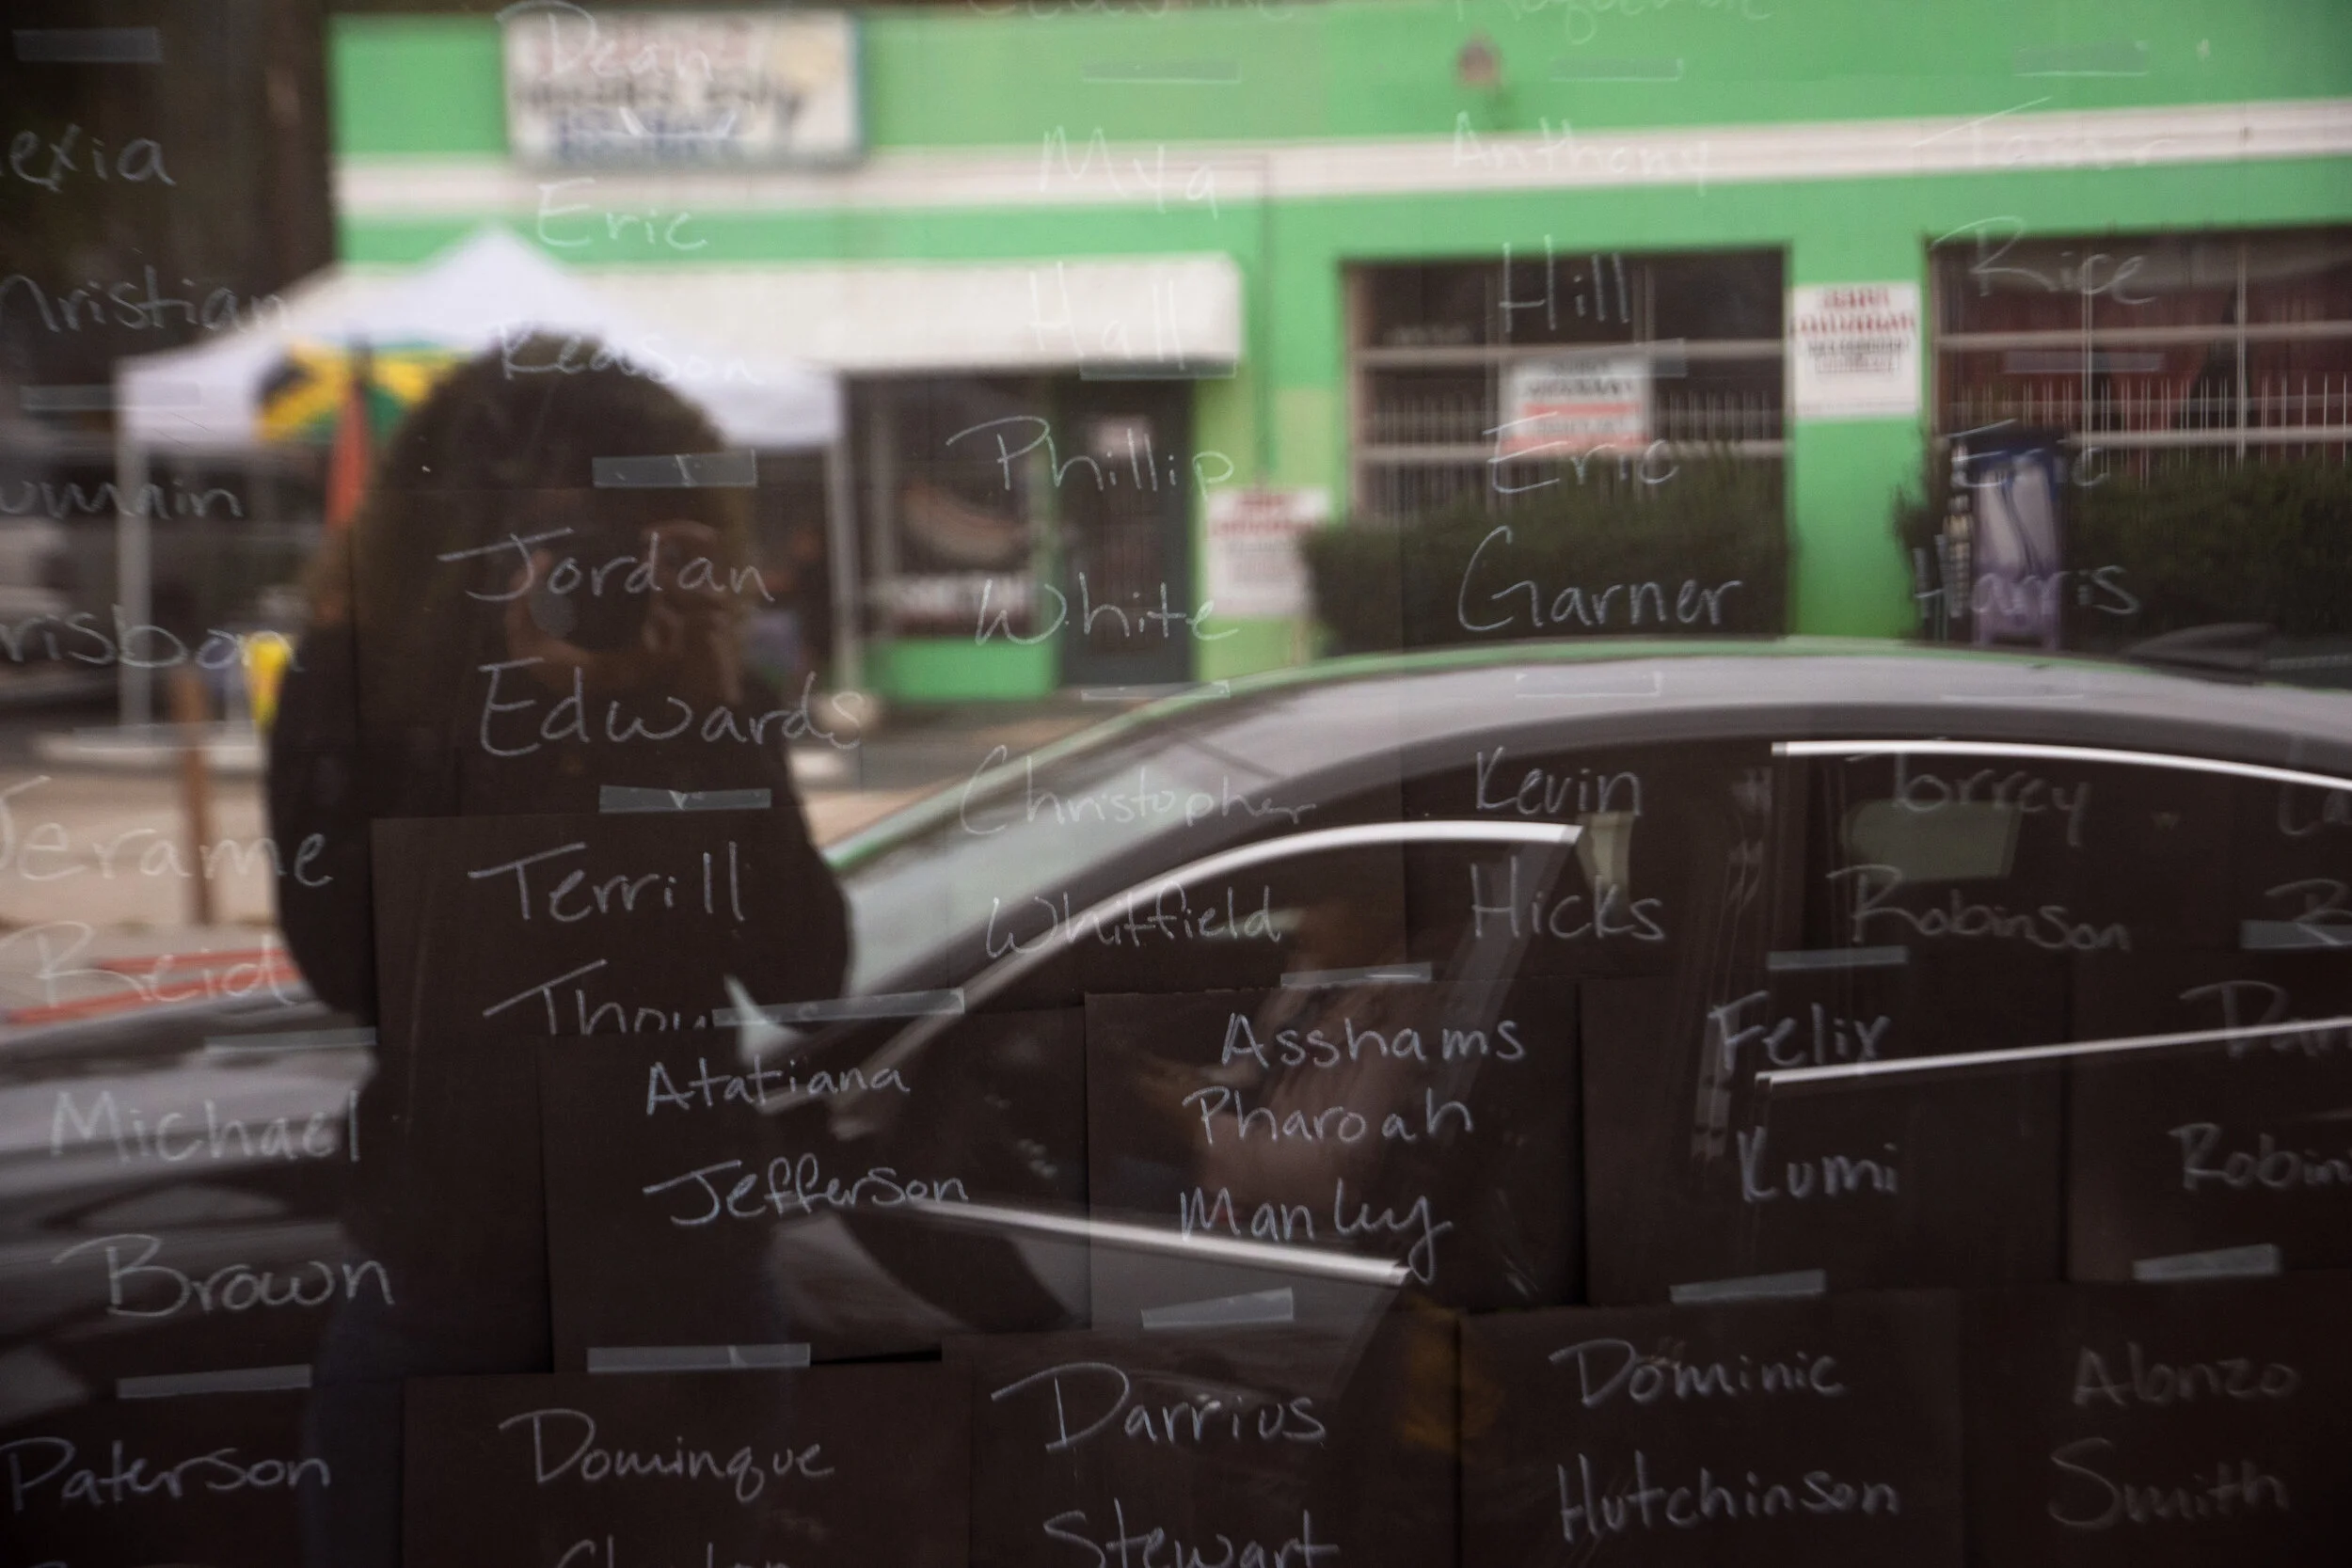 Dean
exia
Eric
Reason
Mya
Hall
Anthony
Hill
Tamir
Rice
hristian
Jordan
Edwards
Phillip
White
Eric
Garner
Eric
Harris
risbon
Jerame
Reid
Terrill
Thom
Christopher
Whitfield
Kevin
Hicks
Torrey
Robinson
Michael
Brown
Atatiana
Jefferson
Asshams
Pharoah
Manley
Felix
Kumi
Dari
Robin
Paterson
Dominque
Darrius
Stewart
Dominic
Hutchinson
Alonzo
Smith